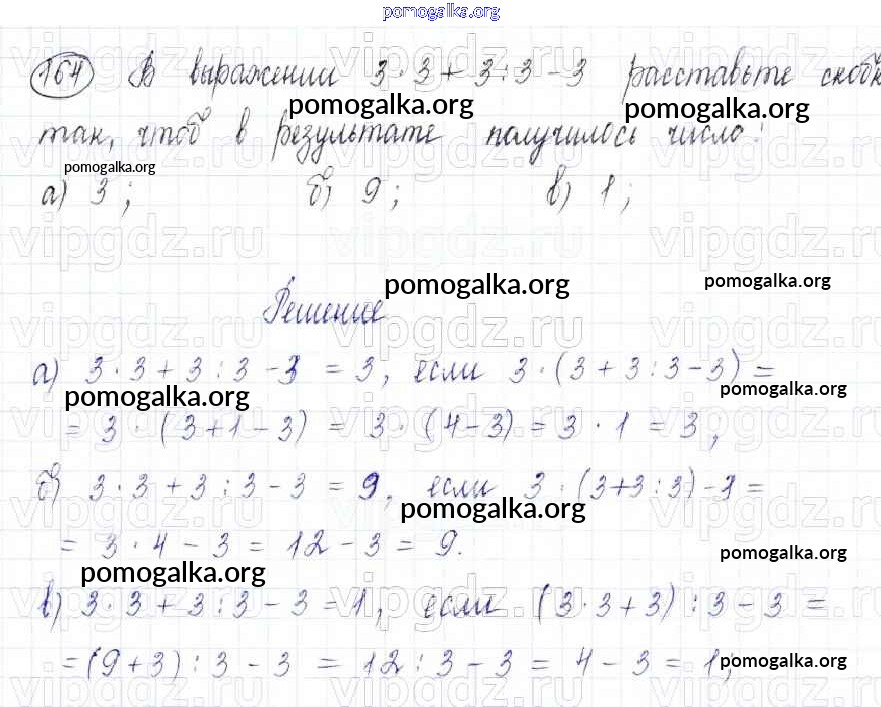 pomogalka.org
164 В выражении 3 · 3 + 3 : 3 - 3 расставьте скобк
pomogalka.org pomogalka.org
так, чтоб в результате получилось число:
pomogalka.org
а) 3; б) 9; в) 1;
vipgdz.ru vipgdz.ru vipgdz.ru
pomogalka.org pomogalka.org
Решение
vipgdz.ru vipgdz.ru vipgdz.ru
а) 3 · 3 + 3 : 3 - 3 = 3, если 3 · (3 + 3 : 3 - 3) =
pomogalka.org pomogalka.org
= 3 · (3 + 1 - 3) = 3 · (4 - 3) = 3 · 1 = 3,
б) 3 · 3 + 3 : 3 - 3 = 9, если 3 · (3 + 3 : 3) - 3 =
pomogalka.org
= 3 · 4 - 3 = 12 - 3 = 9.
pomogalka.org
pomogalka.org
в) 3 · 3 + 3 : 3 - 3 = 1, если (3 · 3 + 3) : 3 - 3 =
= (9 + 3) : 3 - 3 = 12 : 3 - 3 = 4 - 3 = 1;
pomogalka.org